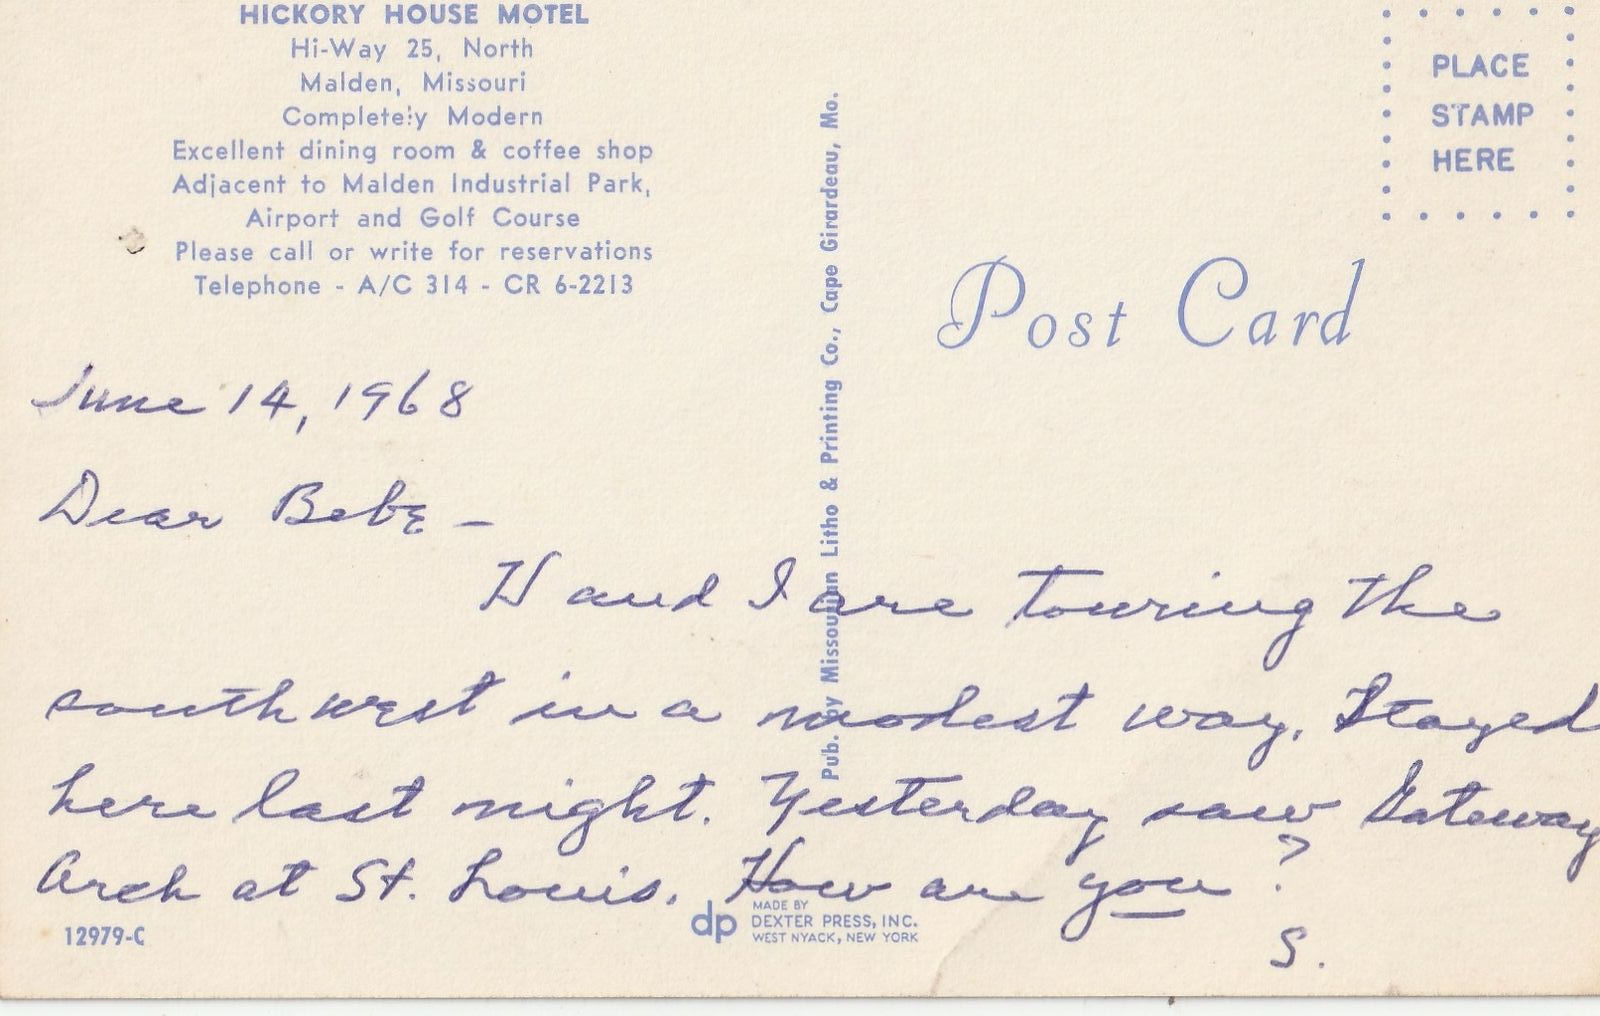 HICKORY HOUSE MOTEL
Hi-Way 25, North
Malden, Missouri
Completely Modern
Excellent dining room & coffee shop
Adjacent to Malden Industrial Park,
Airport and Golf Course
Please call or write for reservations
Telephone - A/C 314 - CR 6-2213
PLACE
STAMP
HERE
Post Card
Pub. by Missourian Litho & Printing Co., Cape Girardeau, Mo.
June 14, 1968
Dear Bebe -
H and I are touring the
southwest in a modest way. Stayed
here last night. Yesterday saw Gateway
Arch at St. Louis. How are you?
S.
12979-C
dp
MADE BY
DEXTER PRESS, INC.
WEST NYACK, NEW YORK